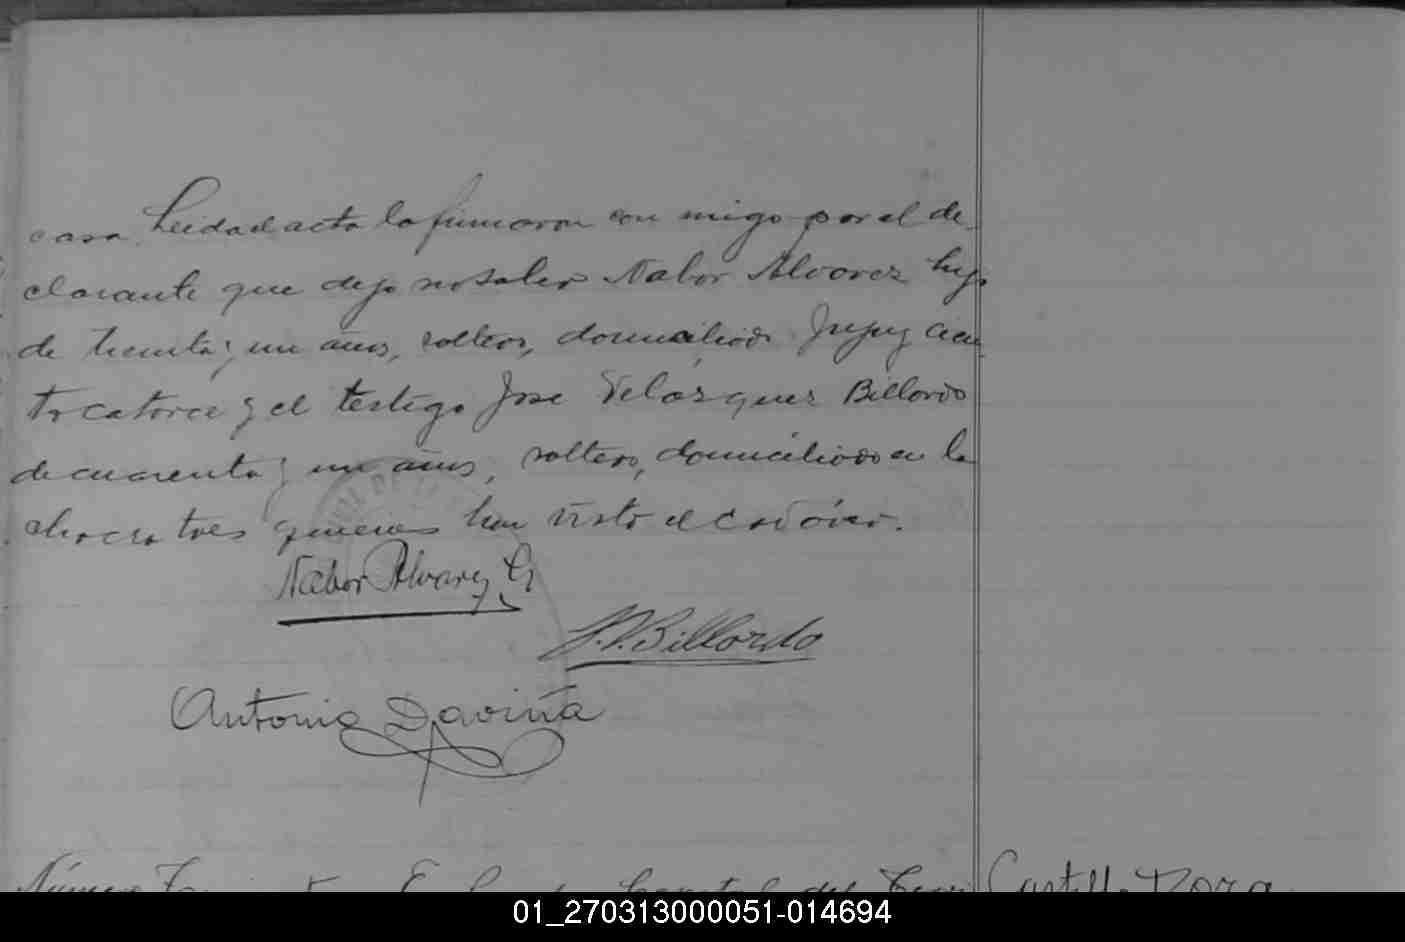 casa. Leida el acta la firmaron con migo por el de
clarante que dijo no saber Nabor Alvarez hijo
de treinta y un años, soltero, domiciliado Jujuy cien
to catorce y el testigo Jose Velazquez Billordo
de cuarenta y un años, soltero, domiciliado en la
chacra tres quienes han visto el cadáver.
Nabor Alvarez h
J. V. Billordo
Antonio Daviña
Número Castillo Dora
01_270313000051-014694